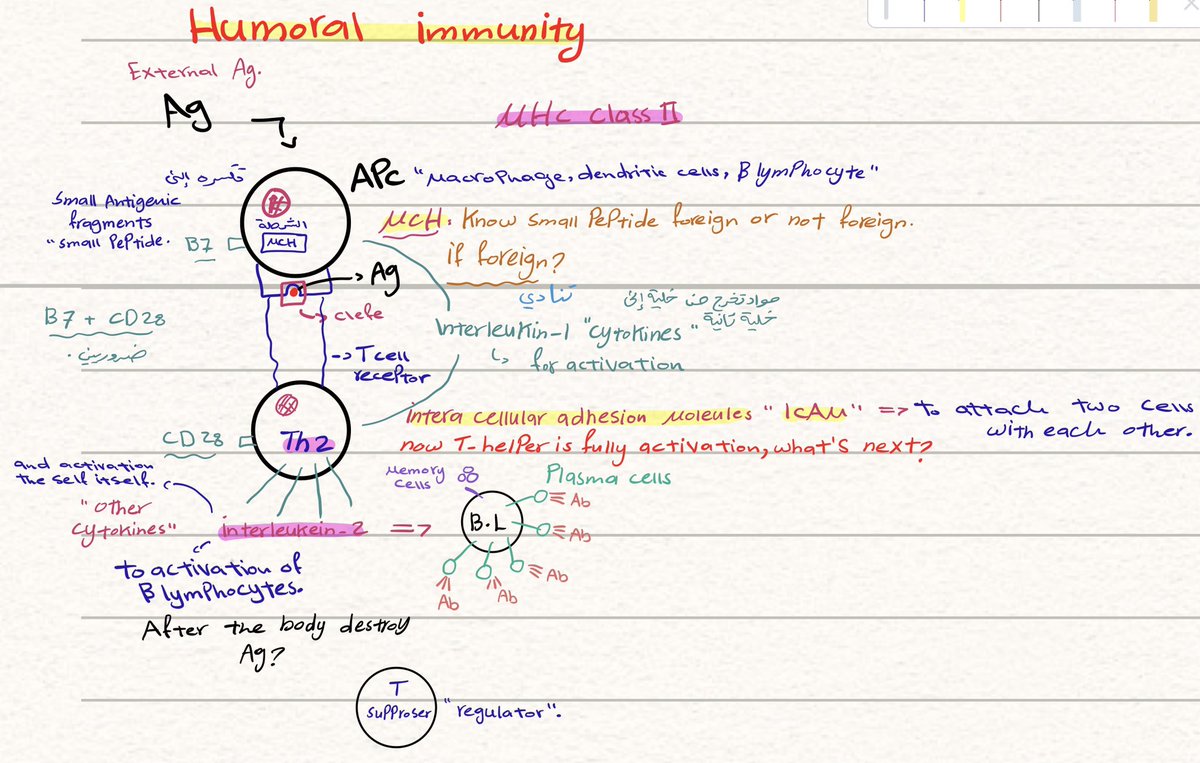 Humoral immunity
External Ag.
Ag
MHc class II
APc "Macrophage, dendritic cells, B lymphocyte"
تكسره إلى
Small Antigenic
fragments
"small Peptide.
الشرطة
MCH
B7
MCH: Know small Peptide foreign or not foreign.
if foreign?
Ag
clefe
تنادي
مواد تخرج من خلية إلى
خلية ثانية
Interleukin-1 "cytokines"
for activation
B7 + CD28
ضروريين.
-> T cell
receptor
intera cellular adhesion molelules "IcAM" => to attach two cells
with each other.
CD28
Th2
now T-helper is fully activation, what's next?
and activation
the self itself.
"other
cytokines"
interleukein-2 =>
Memory
cells
Plasma cells
B.L
Ab
Ab
Ab
Ab
Ab
To activation of
B lymphocytes.
After the body destroy
Ag?
T
supproser
"regulator".